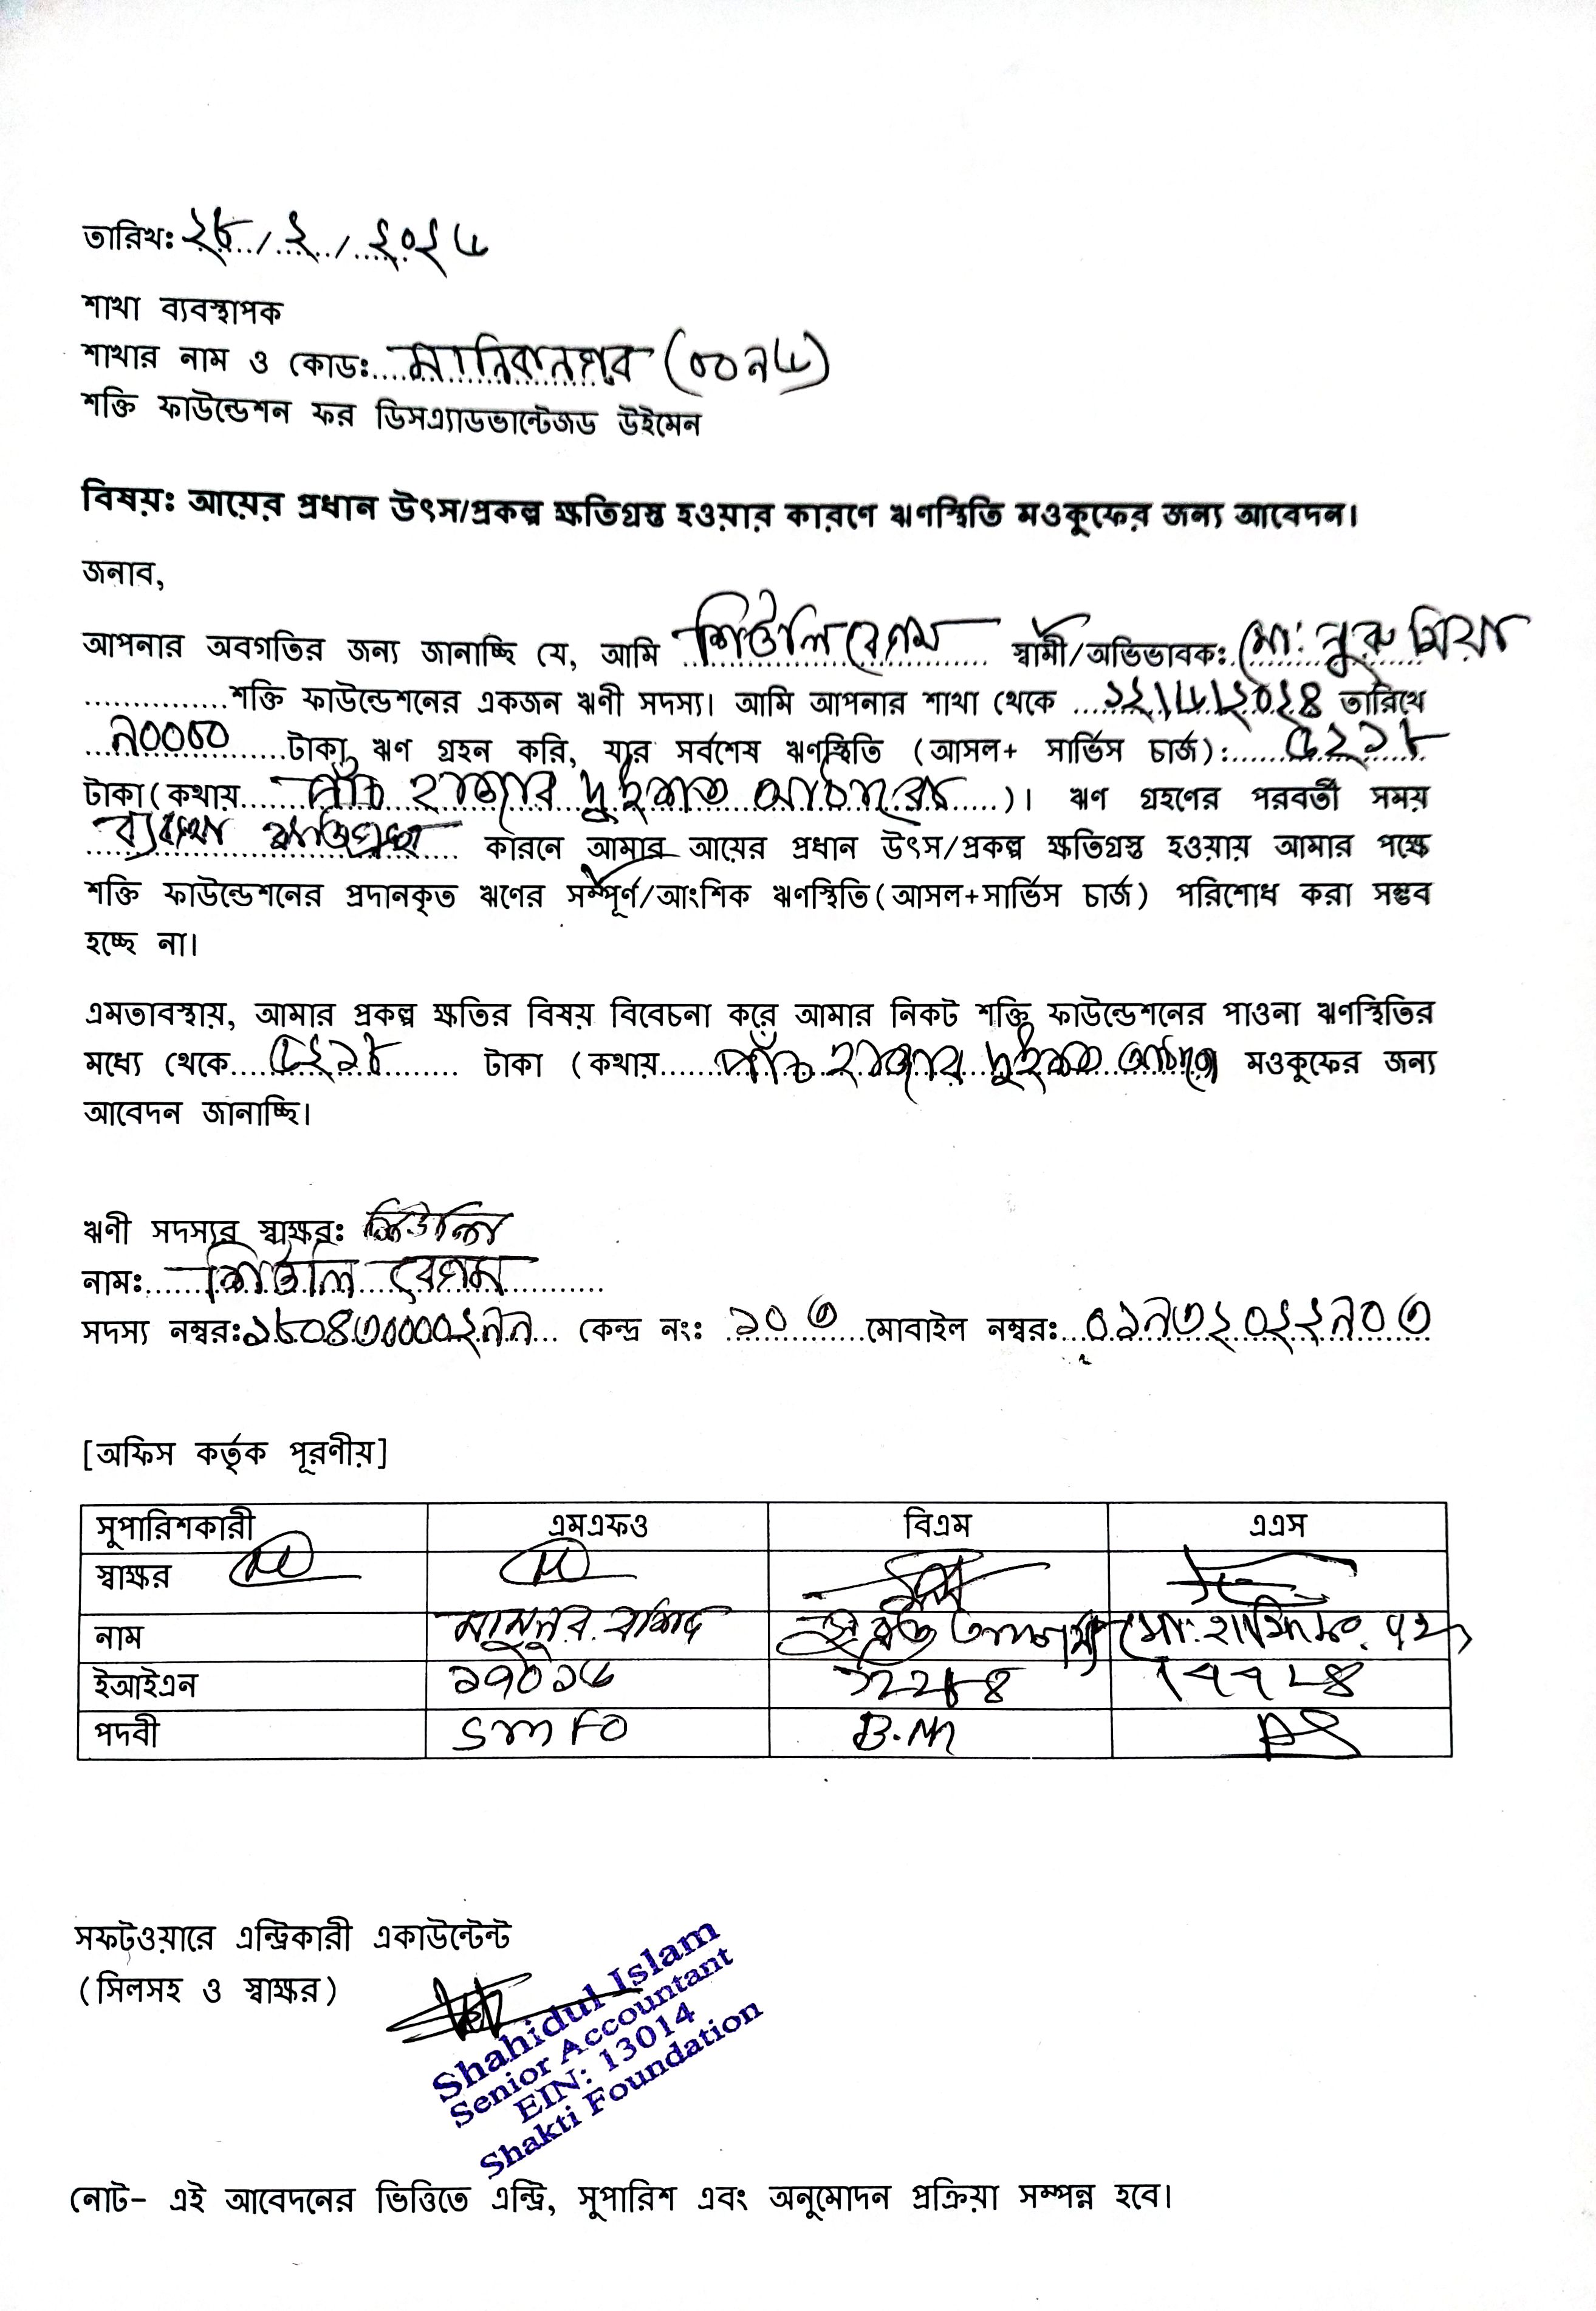 তারিখঃ ২৮/২/২০২৬
শাখা ব্যবস্থাপক
শাখার নাম ও কোডঃ মানিকনগর (০০৯৬)
শক্তি ফাউন্ডেশন ফর ডিসএ্যাডভান্টেজড উইমেন
বিষয়ঃ আয়ের প্রধান উৎস/প্রকল্প ক্ষতিগ্রস্ত হওয়ার কারণে ঋণস্থিতি মওকুফের জন্য আবেদন।
জনাব,
আপনার অবগতির জন্য জানাচ্ছি যে, আমি শিউলি বেগম স্বামী/অভিভাবকঃ মো: নুরু মিয়া
শক্তি ফাউন্ডেশনের একজন ঋণী সদস্য। আমি আপনার শাখা থেকে ১২/৬/২০২৪ তারিখে
৯০০০০ টাকা ঋণ গ্রহন করি, যার সর্বশেষ ঋণস্থিতি (আসল+ সার্ভিস চার্জ): ৫২১৮
টাকা(কথায় পাঁচ হাজার দুইশত আঠারো)। ঋণ গ্রহণের পরবর্তী সময়
ব্যবসা ক্ষতিগ্রস্থ কারনে আমার আয়ের প্রধান উৎস/প্রকল্প ক্ষতিগ্রস্ত হওয়ায় আমার পক্ষে
শক্তি ফাউন্ডেশনের প্রদানকৃত ঋণের সম্পূর্ণ/আংশিক ঋণস্থিতি(আসল+সার্ভিস চার্জ) পরিশোধ করা সম্ভব
হচ্ছে না।
এমতাবস্থায়, আমার প্রকল্প ক্ষতির বিষয় বিবেচনা করে আমার নিকট শক্তি ফাউন্ডেশনের পাওনা ঋণস্থিতির
মধ্যে থেকে ৫২১৮ টাকা (কথায় পাঁচ হাজার দুইশত আঠারো মওকুফের জন্য
আবেদন জানাচ্ছি।
ঋণী সদস্যর স্বাক্ষরঃ শিউলি
নামঃ শিউলি বেগম
সদস্য নম্বরঃ ১৮০৪৩০০০০২৯৯ কেন্দ্র নংঃ ১০৩ মোবাইল নম্বরঃ ০১৯৩২০২২৯০৩
[অফিস কর্তৃক পূরণীয়]
সুপারিশকারী এমএফও বিএম এএস
স্বাক্ষর
নাম মামুনুর রশিদ সুব্রত মো: হাসিদুল হক
ইআইএন ১৭০১৬
পদবী SMFO B.M AS
সফটওয়ারে এন্ট্রিকারী একাউন্টেন্ট
(সিলসহ ও স্বাক্ষর)
Shahidul Islam
Senior Accountant
EIN: 13014
Shakti Foundation
নোট- এই আবেদনের ভিত্তিতে এন্ট্রি, সুপারিশ এবং অনুমোদন প্রক্রিয়া সম্পন্ন হবে।